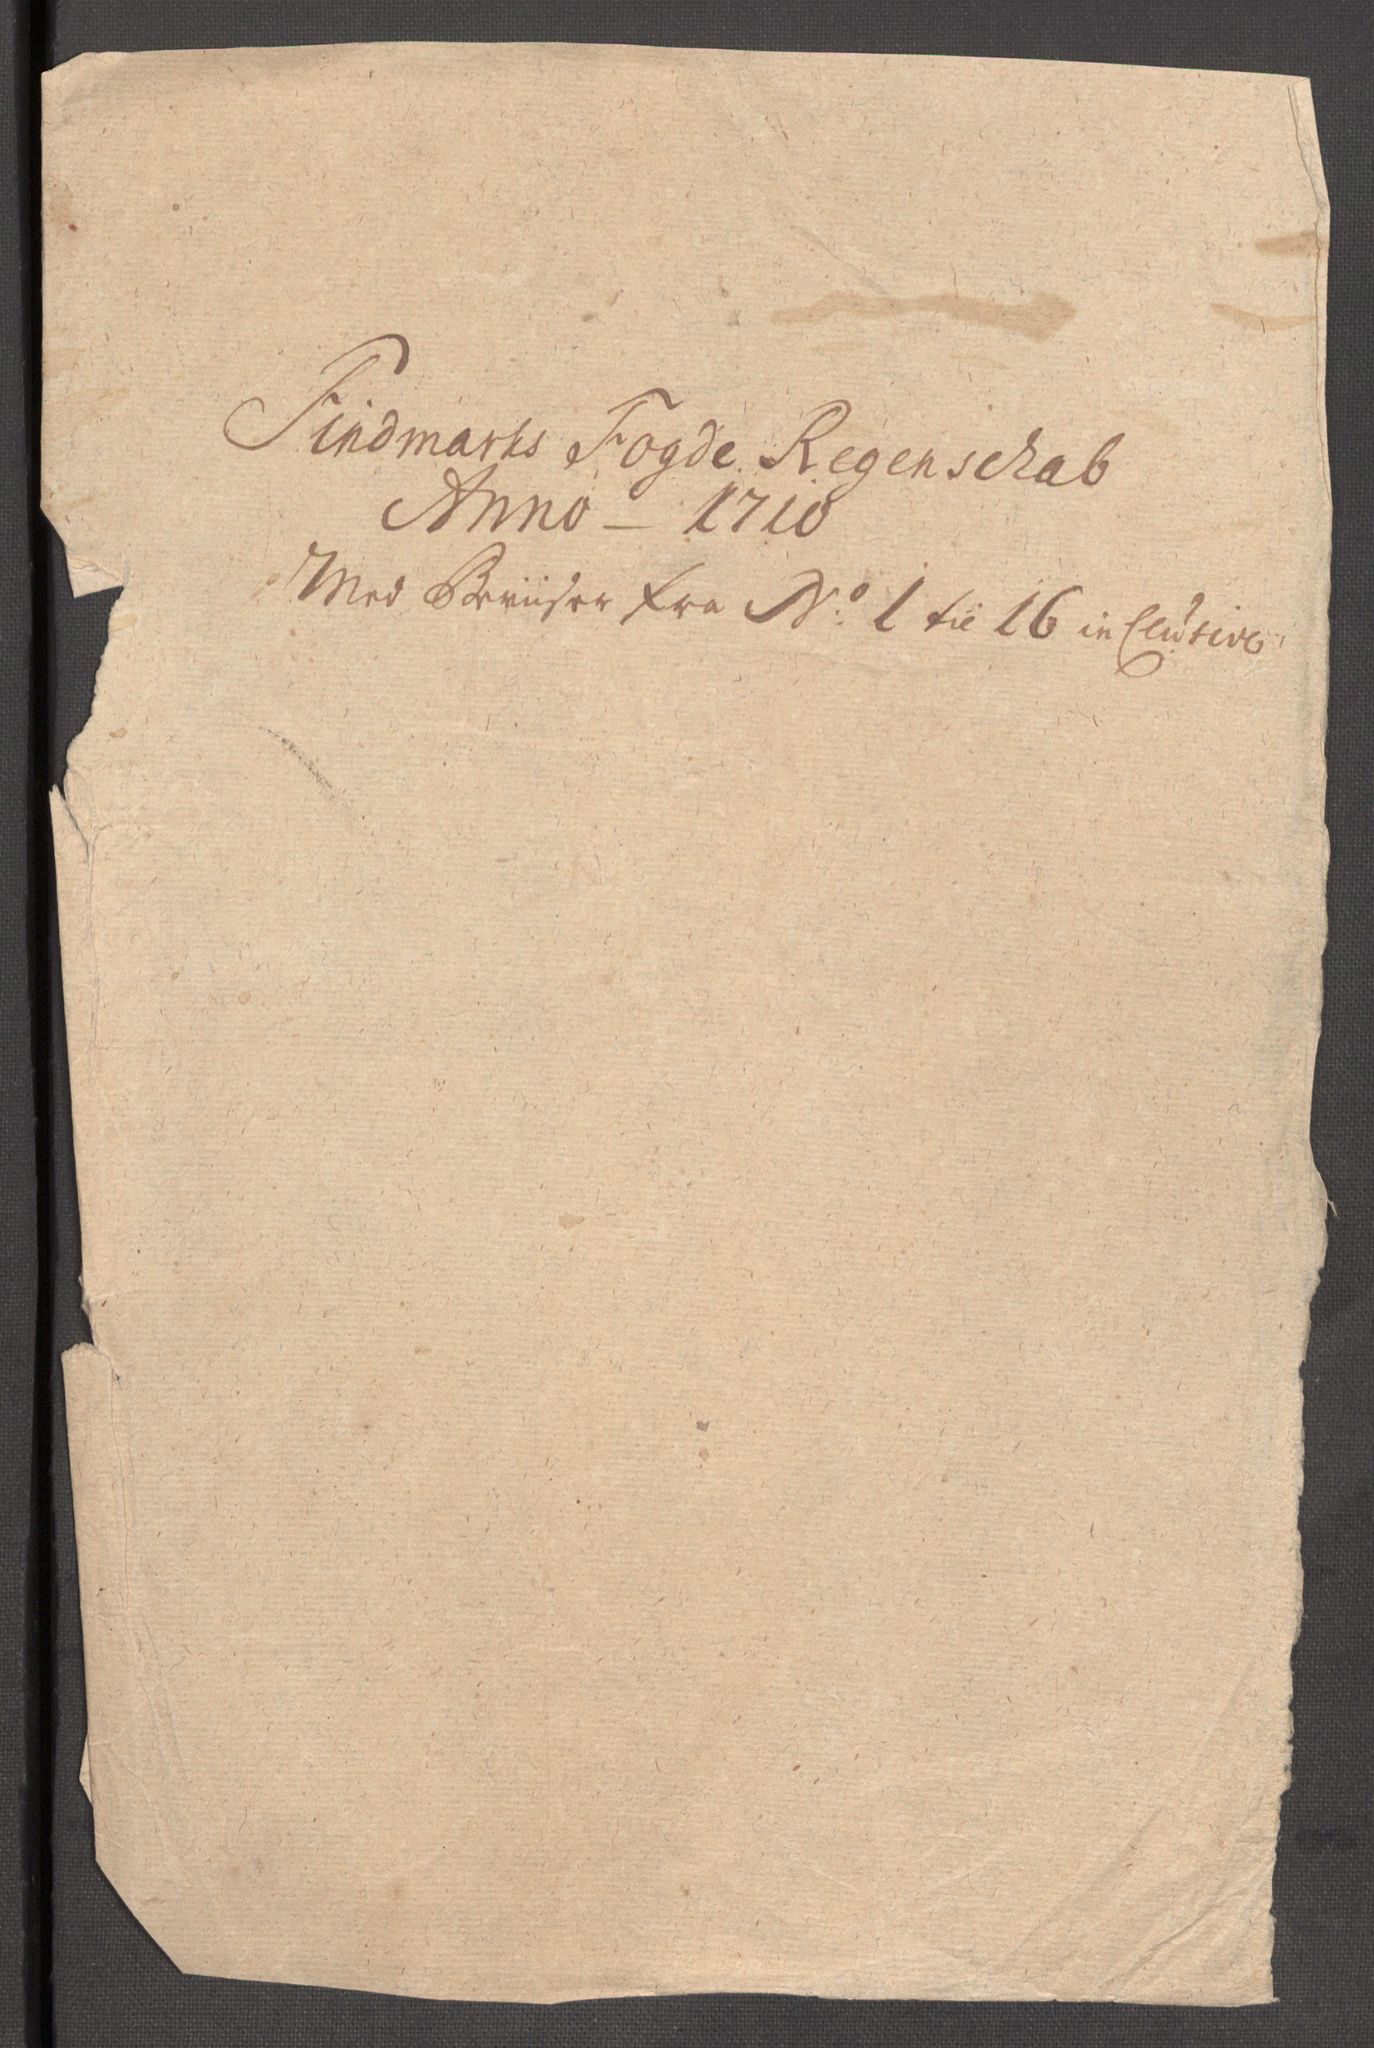 Findmarks Fogde Regenschab
Anno - 1710
Med Beviiser fra No: 1 til 16 inclusive